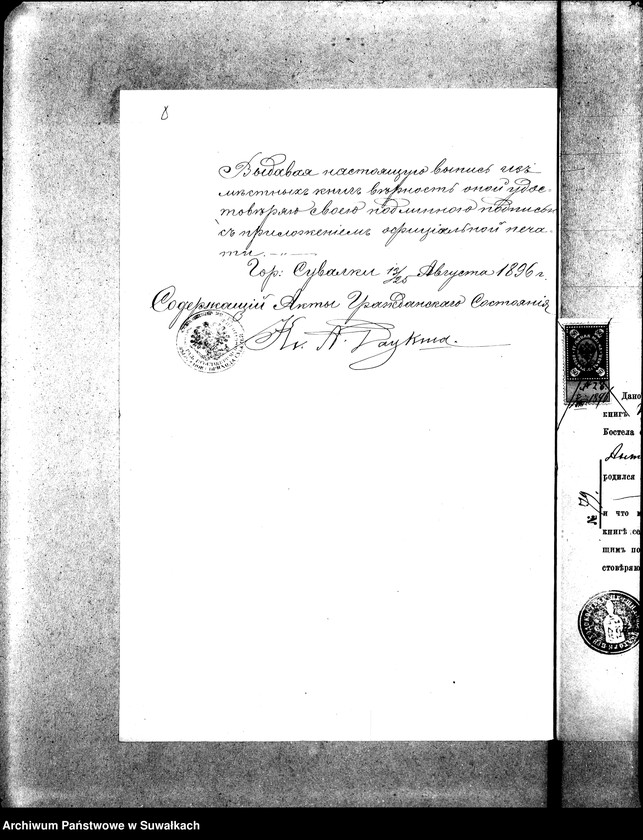 Выдавая настоящую выпись изъ
мѣстныхъ книгъ вѣрность оной удос-
товѣряю своею подлинною подписью
съ приложеніемъ оффиціальной печа-
ти.
Гор: Сувалки 13/25 Августа 1896 г.
Содержащій Акты Гражданскаго Состоянія
Кс. А.
Дано
книгѣ
Костела
родился
№ 79.
и что
книгѣ со
щимъ по
стовѣряю
Archiwum Państwowe w Suwałkach